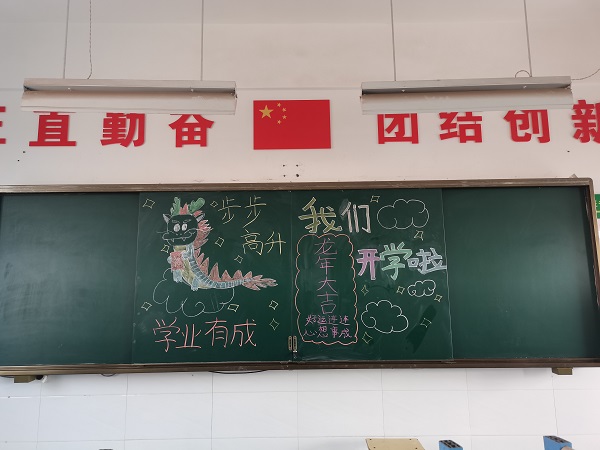 正直勤奋
团结创新
步步
高升
学业有成
我们
开学啦
龙年大吉
好运连连
心想事成